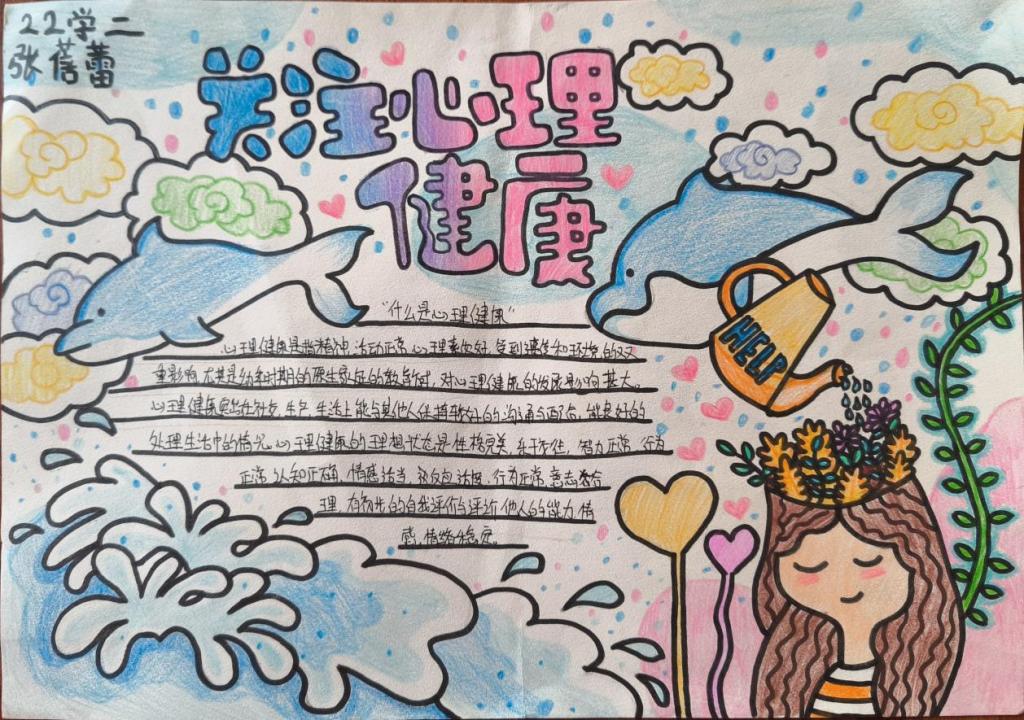 22学二
张蓓蕾
关注心理
健康
"什么是心理健康"
心理健康是指精神、活动正常、心理素质好,受到遗传和环境的双
重影响,尤其是幼年时期的原生家庭的教育,对心理健康的发展影响甚大。
心理健康突出在社交、生产、生活上能与其他人保持较好的沟通与配合,能良好的
处理生活中的情况。心理健康的理想状态是性格完美、智力正常、行为
正常、认知正确、情感适当、活度、行为正常、意志合
理、有的自我评价与评价他人的能力、情
感、情绪稳定。
HELP